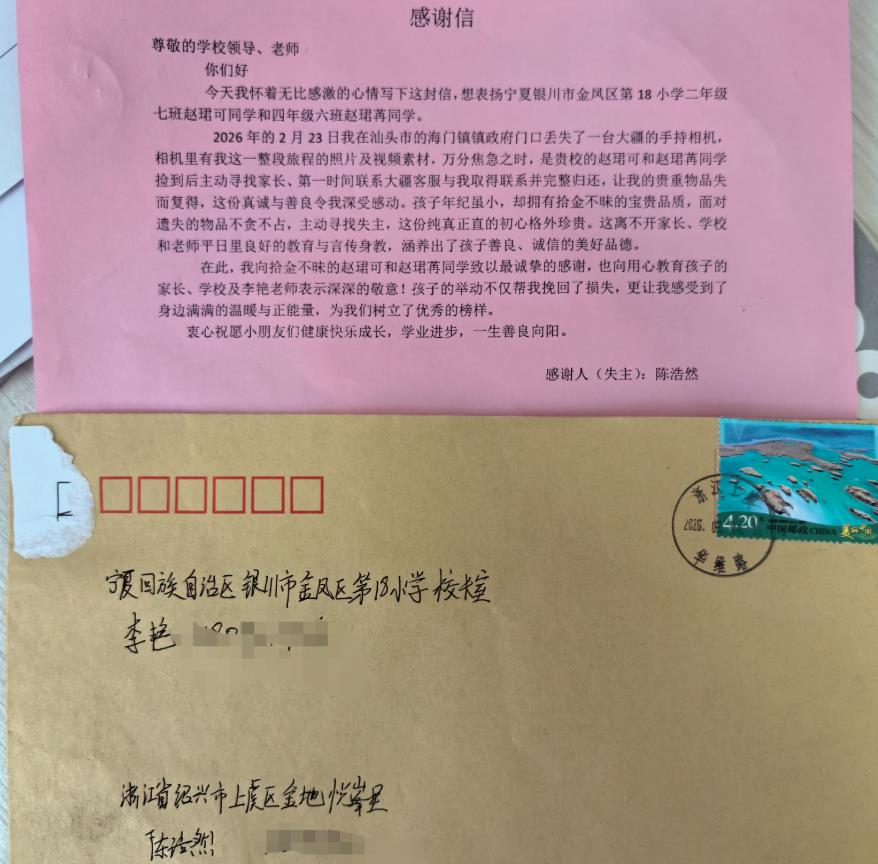 感谢信
尊敬的学校领导、老师
你们好
今天我怀着无比感激的心情写下这封信，想表扬宁夏银川市金凤区第 18 小学二年级
七班赵珺可同学和四年级六班赵珺苒同学。
2026 年的 2 月 23 日我在汕头市的海门镇镇政府门口丢失了一台大疆的手持相机，
相机里有我这一整段旅程的照片及视频素材，万分焦急之时，是贵校的赵珺可和赵珺苒同学
捡到后主动寻找家长、第一时间联系大疆客服与我取得联系并完整归还，让我的贵重物品失
而复得，这份真诚与善良令我深受感动。孩子年纪虽小，却拥有拾金不昧的宝贵品质，面对
遗失的物品不贪不占，主动寻找失主，这份纯真正直的初心格外珍贵。这离不开家长、学校
和老师平日里良好的教育与言传身教，涵养出了孩子善良、诚信的美好品德。
在此，我向拾金不昧的赵珺可和赵珺苒同学致以最诚挚的感谢，也向用心教育孩子的
家长、学校及李艳老师表示深深的敬意！孩子的举动不仅帮我挽回了损失，更让我感受到了
身边满满的温暖与正能量，为我们树立了优秀的榜样。
衷心祝愿小朋友们健康快乐成长，学业进步，一生善良向阳。
感谢人（失主）：陈浩然
4.20元
中国邮政 CHINA
浙江上
2026.0
宁夏回族自治区银川市金凤区第18小学校长室
李艳
浙江省绍兴市上虞区金地悦峯里
陈浩然